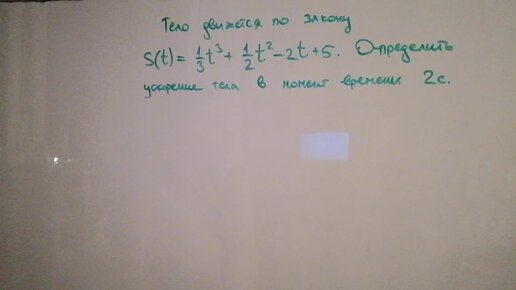 Тело движется по закону
S(t) = 1/3 t³ + 1/2 t² - 2t + 5. Определить
ускорение тела в момент времени 2с.